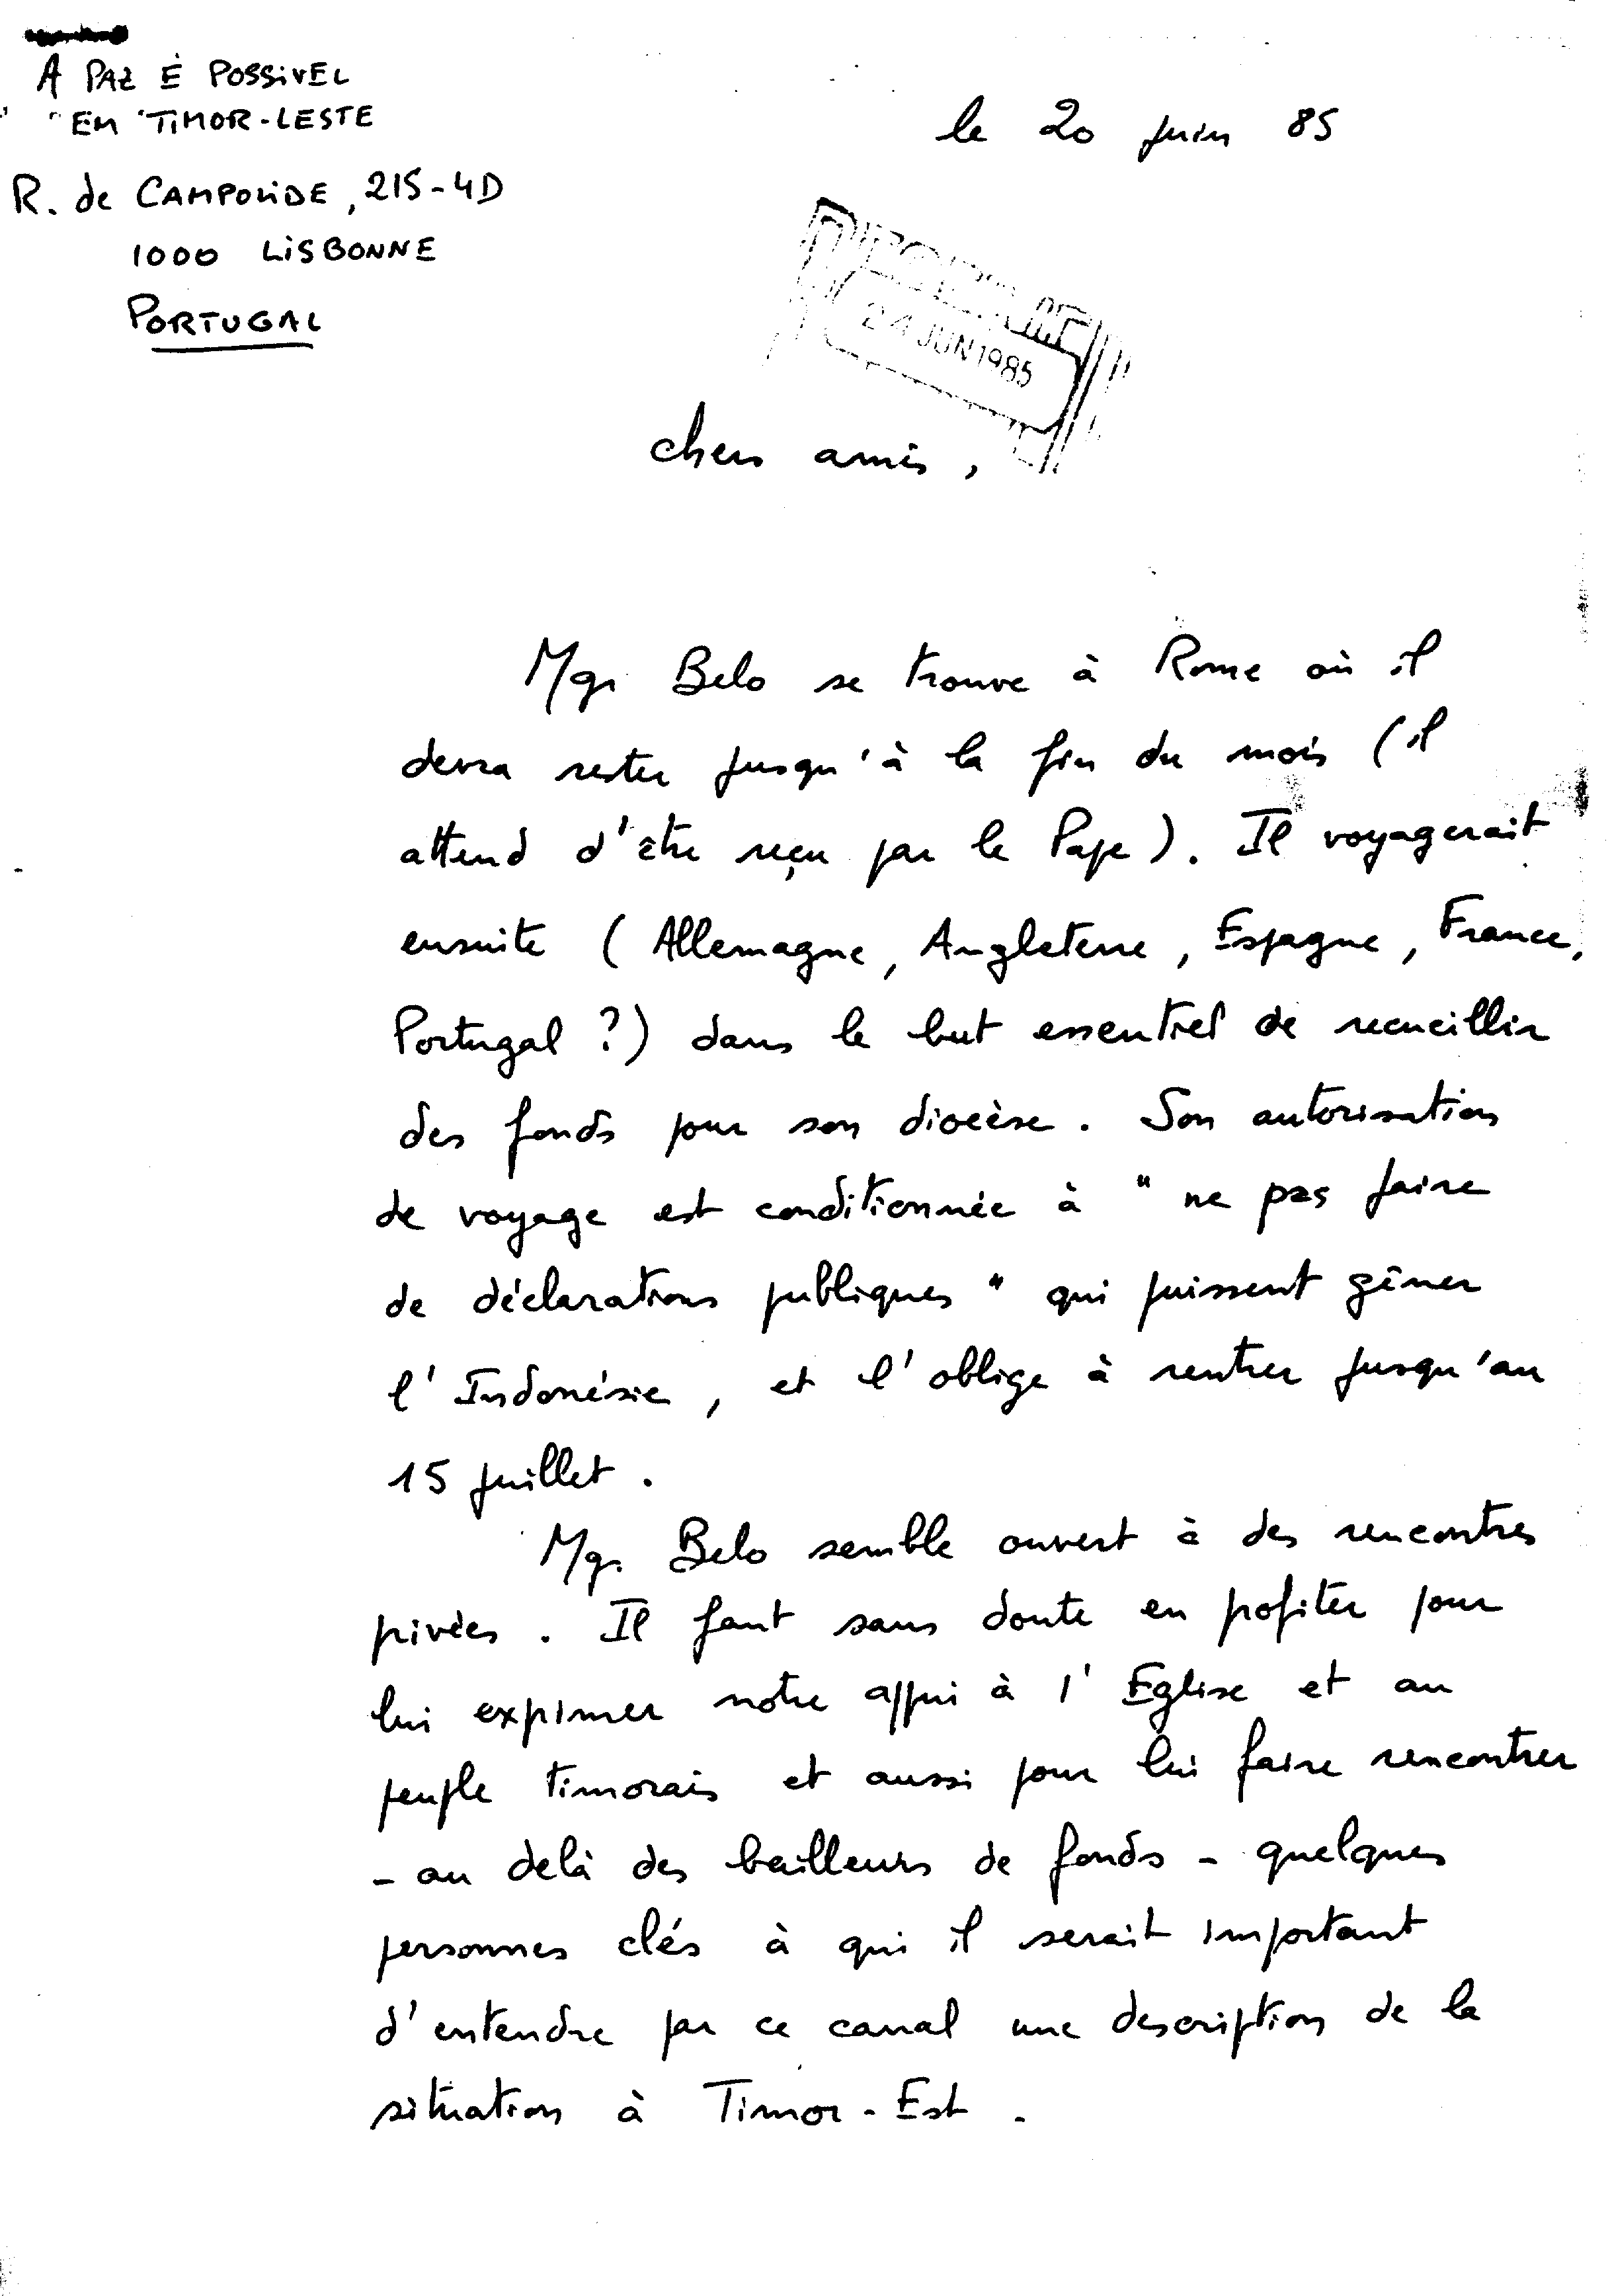 A PAZ É POSSIVEL
EM TIMOR-LESTE
R. de CAMPOLIDE, 215-4D
1000 LISBONNE
PORTUGAL
le 20 juin 85
24 JUN 1985
chers amis,
Mgr Belo se trouve à Rome où il
devra rester jusqu'à la fin du mois (il
attend d'être reçu par le Pape). Il voyagerait
ensuite (Allemagne, Angleterre, Espagne, France,
Portugal ?) dans le but essentiel de recueillir
des fonds pour son diocèse. Son autorisation
de voyage est conditionnée à "ne pas faire
de déclarations publiques" qui puissent gêner
l'Indonésie, et l'oblige à rentrer jusqu'au
15 juillet.
Mgr Belo semble ouvert à des rencontres
privées. Il faut sans doute en profiter pour
lui exprimer notre appui à l'Eglise et au
peuple timorais et aussi pour lui faire rencontrer
- au delà des bailleurs de fonds - quelques
personnes clés à qui il serait important
d'entendre par ce canal une description de la
situation à Timor-Est.